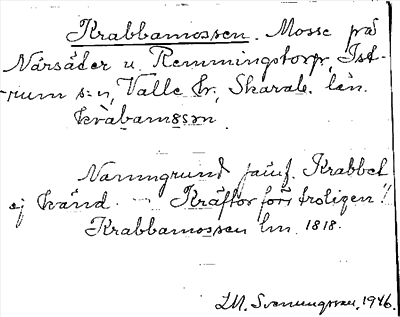 Krabbamossen. Mosse på
Närsäter u. Remmingstorp, Ist-
rum s:n, Valle hr, Skarab. län.
kràbamåsən.
Namngrund jämf. Krabbet
ej känd. — Kräftor förr troligen!
Krabbamossen Lm. 1818.
L.M. Svenungsson, 1946.